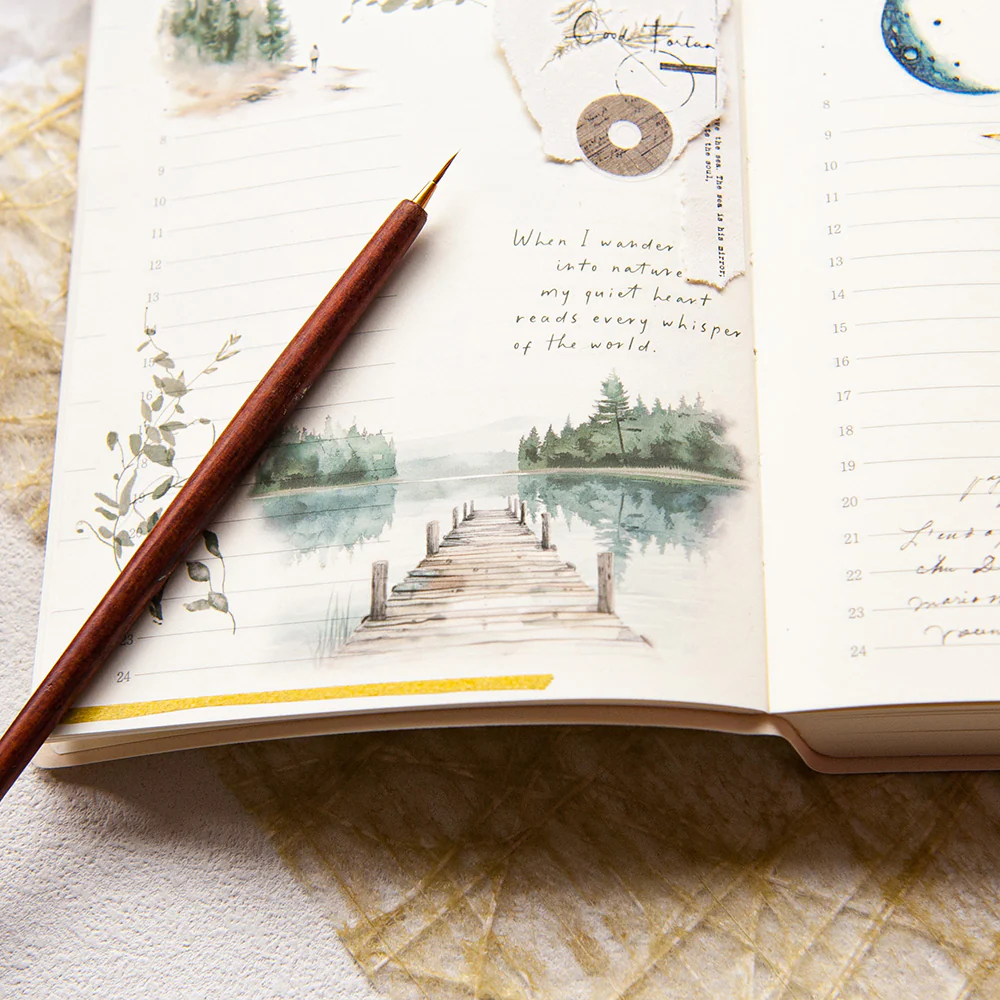 Good Fortun
e the sea. The sea is his mirror;
te the soul,
When I wander
into nature
my quiet heart
reads every whisper
of the world.
8
9
10
11
12
13
18
20
23
24
8
9
10
11
12
13
14
15
16
17
18
19
20
21
22
23
24